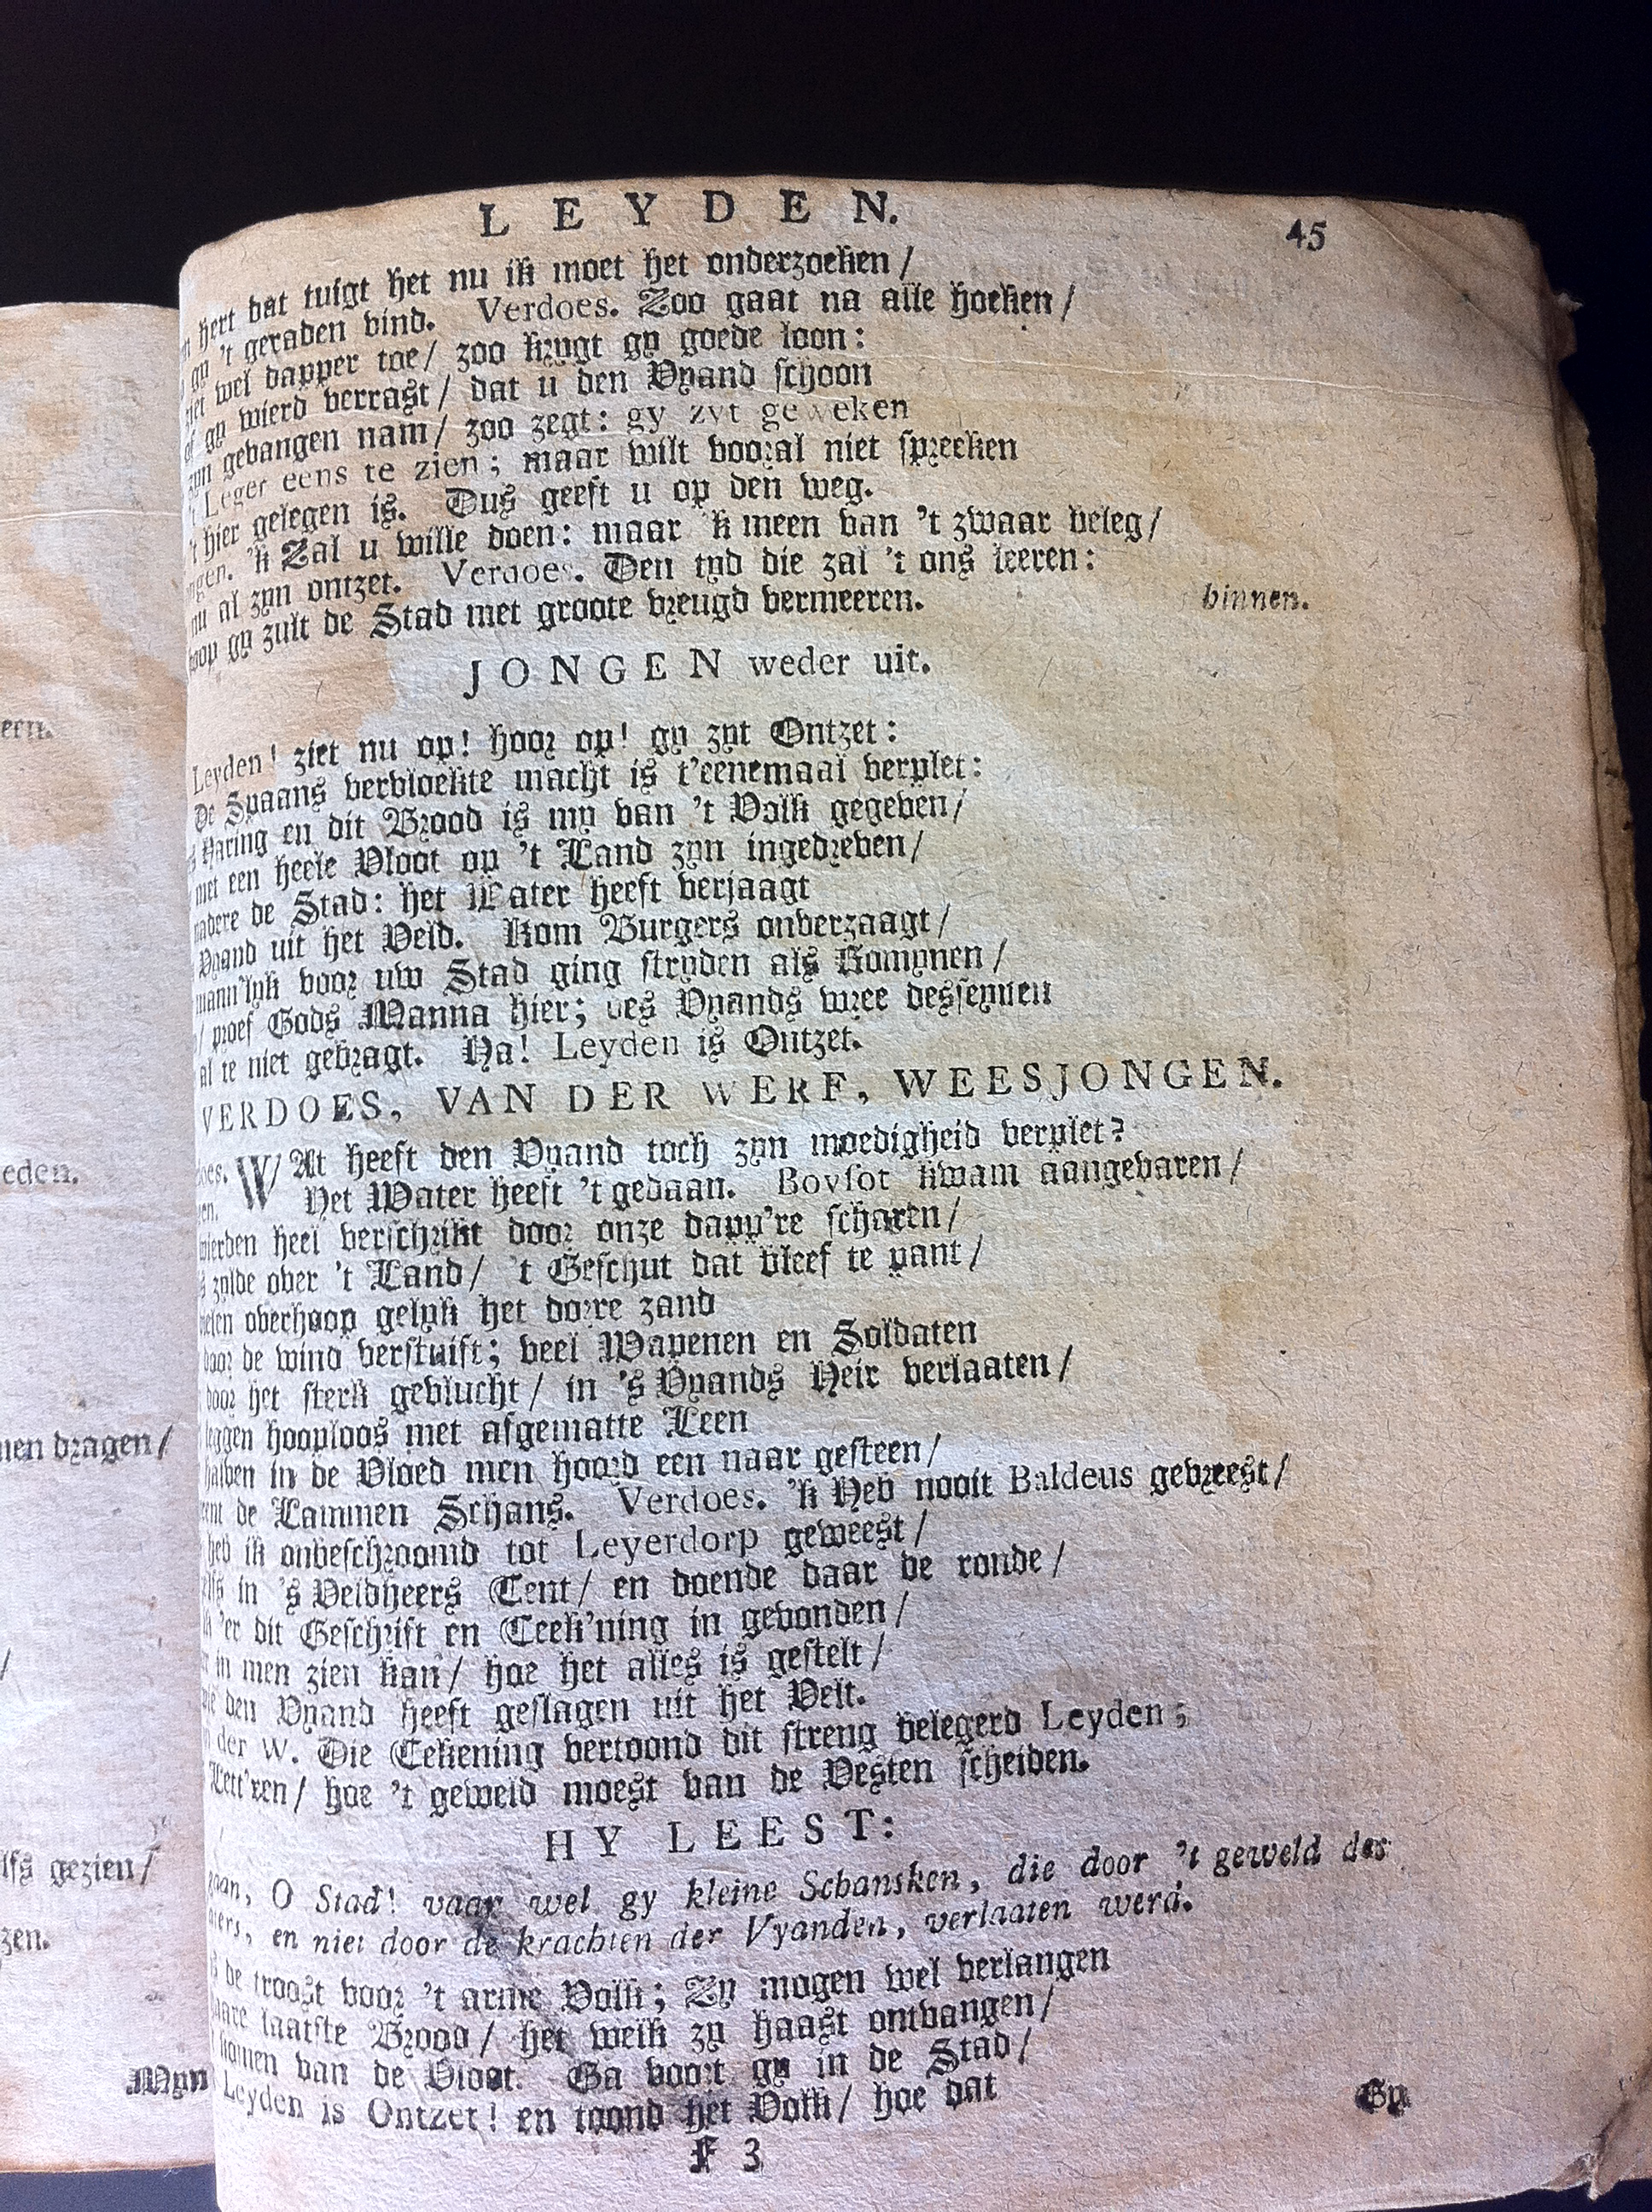 LEYDEN. 45
hert dat tuigt het nu ik moet het onderzoeken /
gy 't geraden vind. Verdoes. Zoo gaat na alle hoeken /
wel dapper toe / zoo krygt gy goede loon :
of gy wierd verrast / dat u den Vyand schoon
gevangen nam / zoo zegt : gy zyt geweken
't Leger eens te zien ; maar wilt vooral niet spreeken
't hier gelegen is. Dus geeft u op den weg.
'k Zal u wille doen : maar 'k meen van 't zwaar beleg /
nu al zyn ontzet. Verdoes. Den tyd die zal 't ons leeren :
gy zult de Stad met groote vreugd vermeeren. binnen.
JONGEN weder uit.
Leyden ! ziet nu op ! hoor op ! gy zyt Ontzet :
De Spaans vervloekte macht is t'eenemaal verplet :
Haring en dit Brood is my van 't Volk gegeven /
met een heele Vloot op 't Land zyn ingedreven /
de Stad : het Water heeft verjaagt
Vyand uit het Veld. Kom Burgers onverzaagt /
mann'lyk voor uw Stad ging stryden als Romynen /
/ proef Gods Manna hier ; des Vyands wree desseynen
al te niet gebragt. Ha ! Leyden is Ontzet.
VERDOES, VAN DER WERF, WEESJONGEN.
WAt heeft den Vyand toch zyn moedigheid verplet ?
Het Water heeft 't gedaan. Boysot kwam aangevaren /
wierden heel verschrikt door onze dapp're scharen /
over 't Land / 't Geschut dat bleef te pant /
overhoop gelyk het dorre zand
door de wind verstuift ; veel Wapenen en Soldaten
door het sterk gevlucht / in 's Vyands Heir verlaaten /
leggen hooploos met afgematte Leen
halven in de Vloed men hoord een naar gesteen /
de Lammen Schans. Verdoes. 'k Heb nooit Baldeus gevreest /
heb ik onbeschroomd tot Leyerdorp geweest /
in 's Veldheers Tent / en doende daar de ronde /
'er dit Geschrift en Teek'ning in gevonden /
in men zien kan / hoe het alles is gestelt /
den Vyand heeft geslagen uit het Velt.
der W. Die Tekening vertoond dit streng belegerd Leyden ;
Lett'ren / hoe 't geweld moest van de Vesten scheiden.
HY LEEST:
gaan, O Stad! vaar wel gy kleine Schansken, die door 't geweld des
en niet door de krachten der Vyanden, verlaaten werd.
de troost voor 't arme Volk ; Zy mogen wel verlangen
laatste Brood / het welk zy haast ontvangen /
komen van de Vloot. Ga voort gy in de Stad /
Leyden is Ontzet ! en toond het Volk / hoe dat
F 3 Gy
eden.
dragen /
gezien /
zen.
Myn